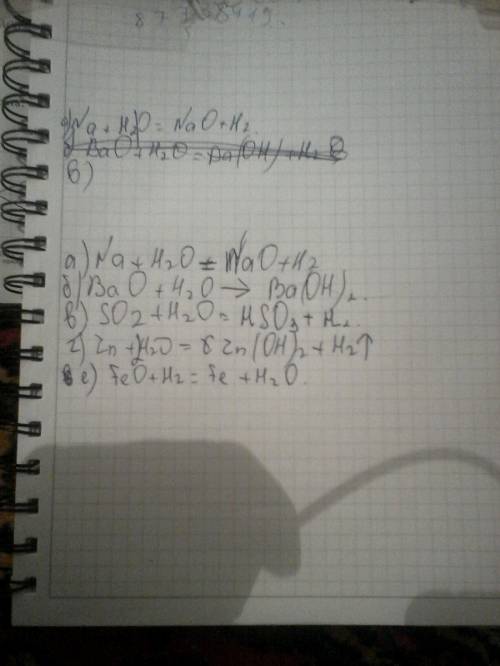 а) Na + H2O = NaO + H2.
б) BaO + H2O = Ba(OH) + H2
в)
а) Na + H2O = NaO + H2
б) BaO + H2O → Ba(OH)2.
в) SO2 + H2O = HSO3 + H2.
г) Zn + H2O = Zn(OH)2 + H2↑
е) FeO + H2 = Fe + H2O.